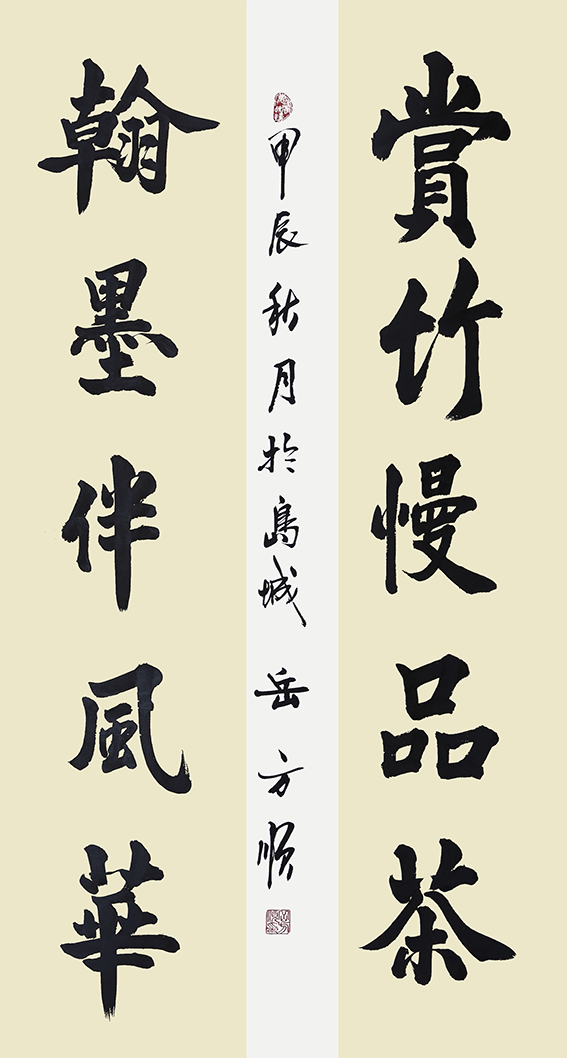 賞竹慢品茶
甲辰秋月於島城 岳方順
翰墨伴風華